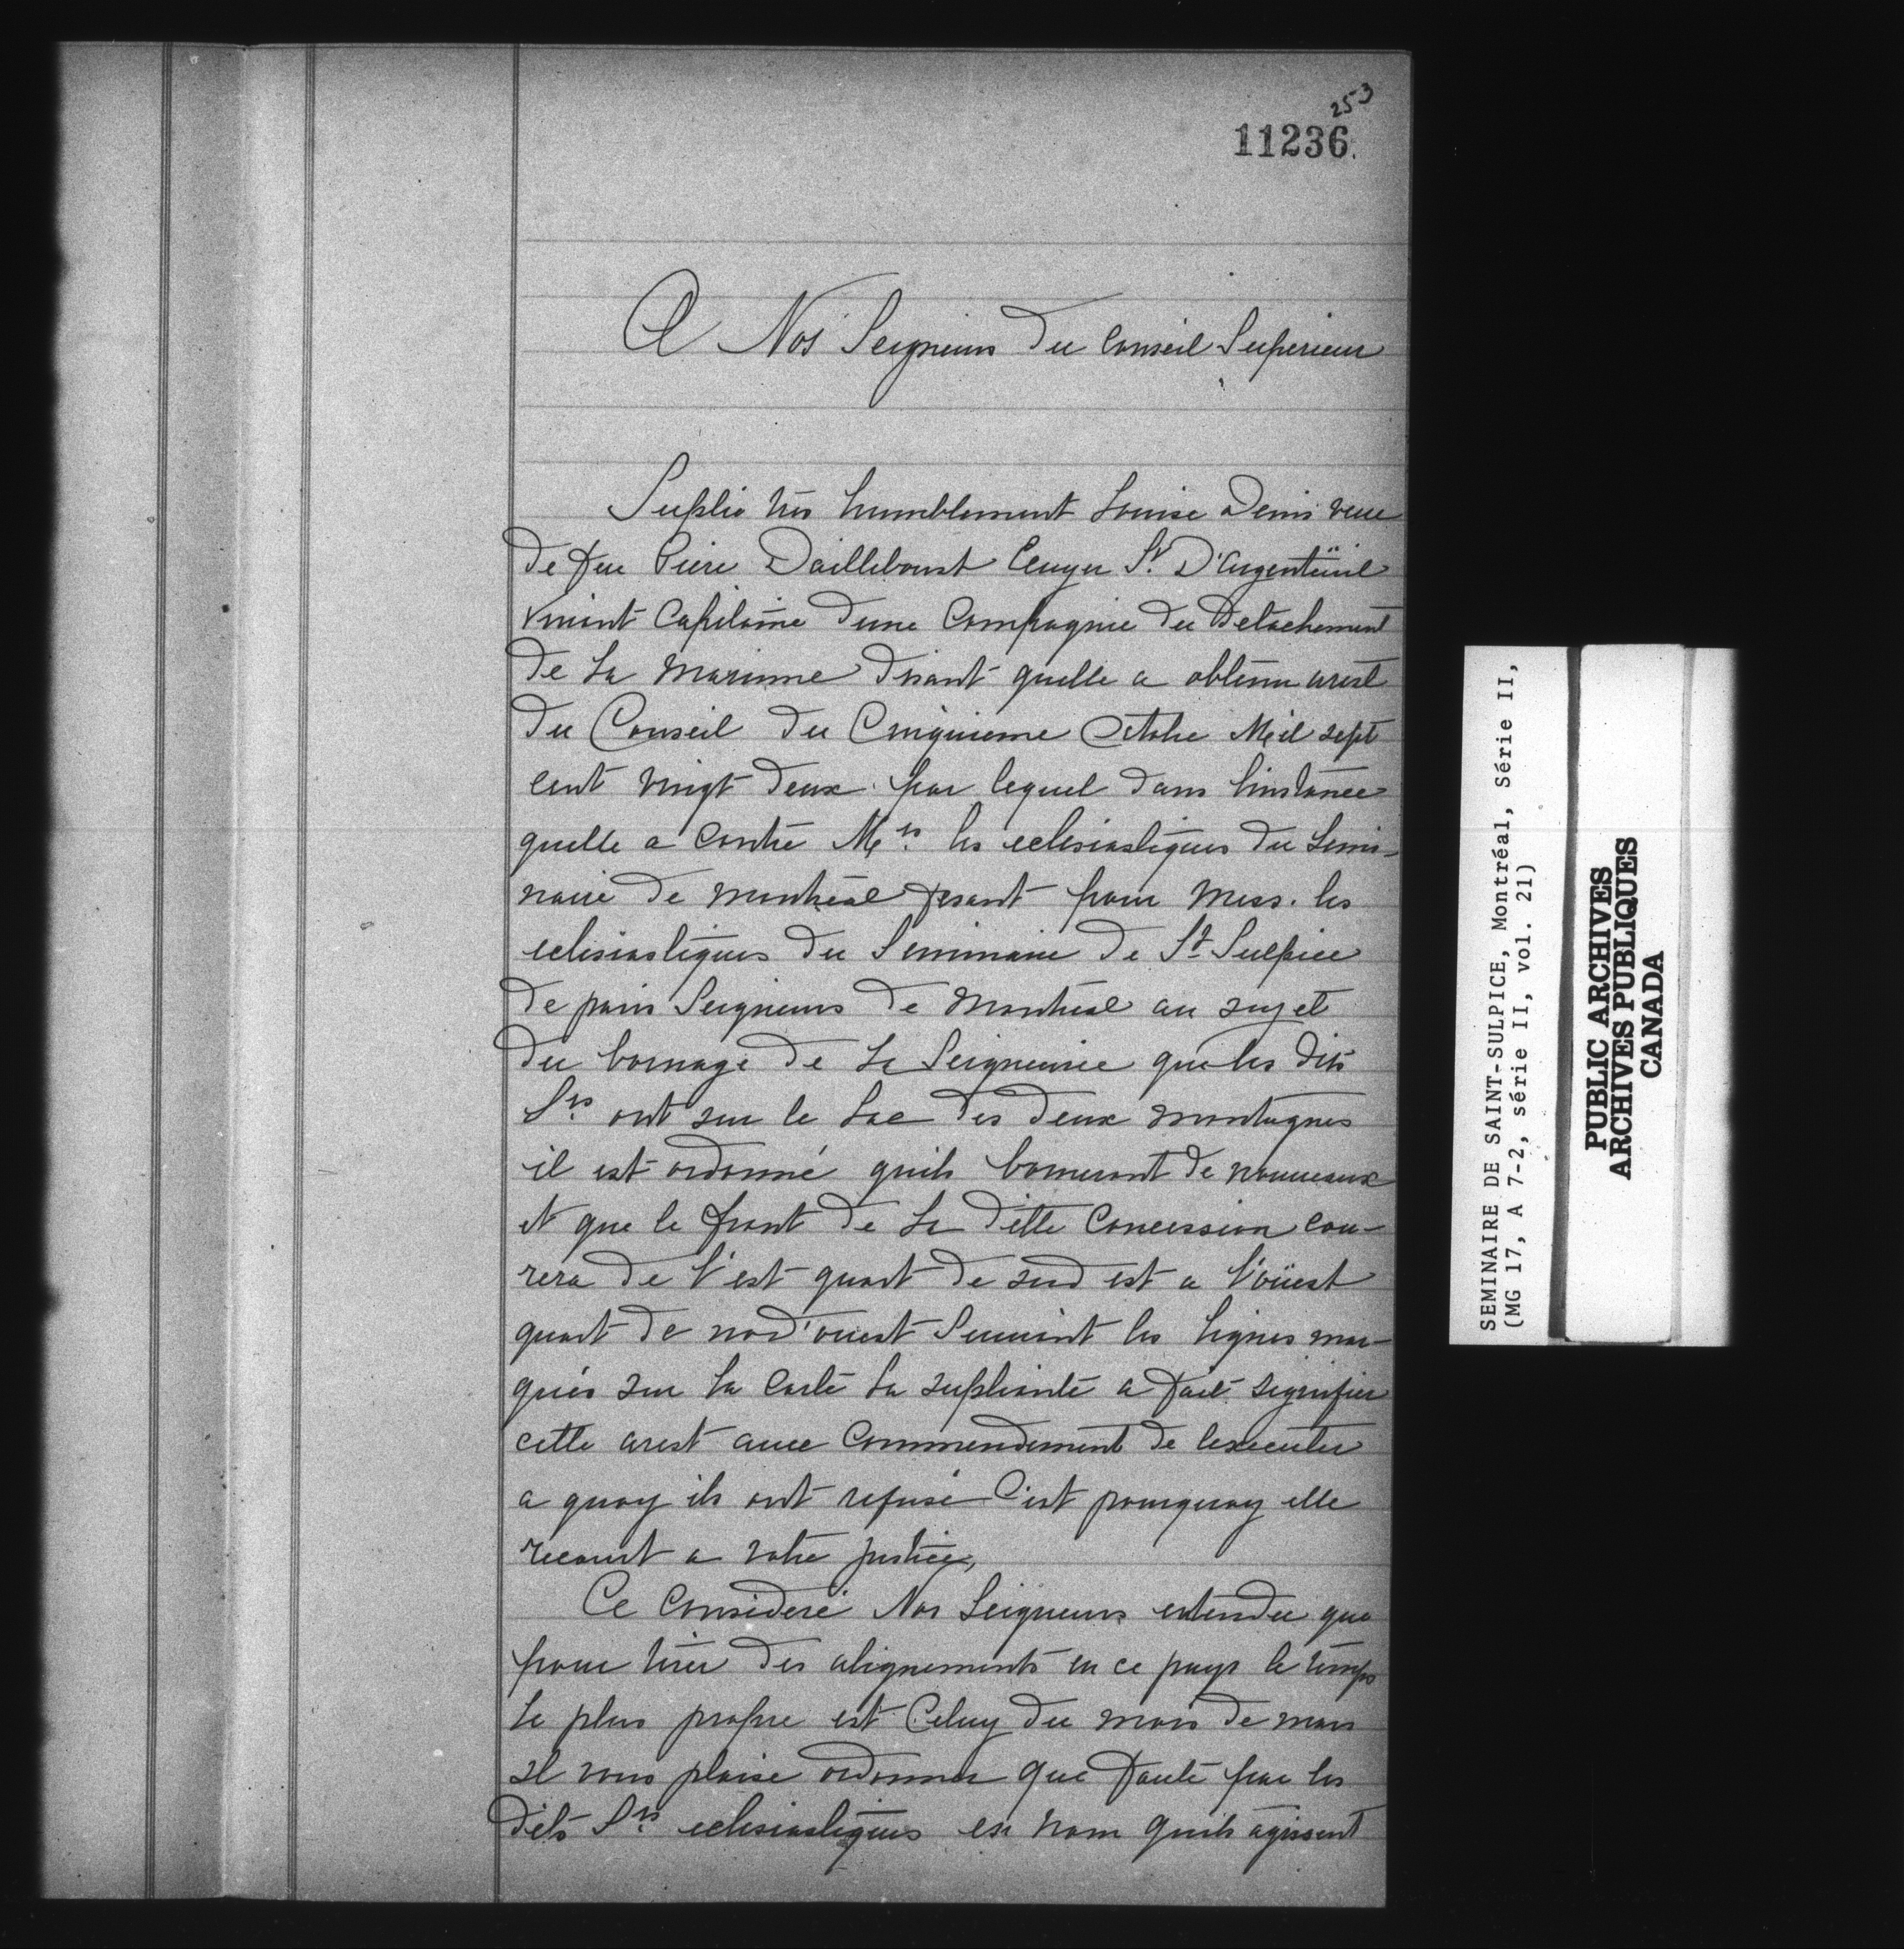 253
11236.
A Nos Seigneurs du Conseil Superieur
Suplie tres humblement Louise Denis veue
de feu Piere Dailleboust Ecuyer Sr. D'argenteüil
viuant Capitaine dune Compagnie du Detachement
de La Marinne disant quelle a obtenu arest
du Conseil du Cinquieme Octobre Mil sept
cent vingt deux par lequel dans linstance
quelle a contre Mrs. les eclesiastiques du Semi-
naire de montreal fesant pour Mess. les
eclesiastiques du Seminaire de St Sulpice
de paris Seigneurs de Montreal au sujet
du bornage de La Seigneurie que les dits
Srs. ont sur le Lac des deux montagnes
il est ordonné quils borneront de nouueaux
et que le front de La ditte Concession cou-
rera de l'est quart de sud est a l'oüest
quart de nord'ouest Suiuant les Lignes mar-
quées sur La Carte La supliante a fait signifier
cette arest auec Commendement de lexecuter
a quoy ils ont refusé C'est pourquoy elle
recourt a votre justice,
Ce Consideré Nos Seigneurs entendu que
pour tirer des alignements en ce pays le temps
Le plus propre est Celuy du mois de mars
Il vous plaise ordonner que faute par les
dits Srs. eclesiastiques es nom quils agissent
SEMINAIRE DE SAINT-SULPICE, Montréal, Série II,
(MG 17, A 7-2, série II, vol. 21)
PUBLIC ARCHIVES
ARCHIVES PUBLIQUES
CANADA